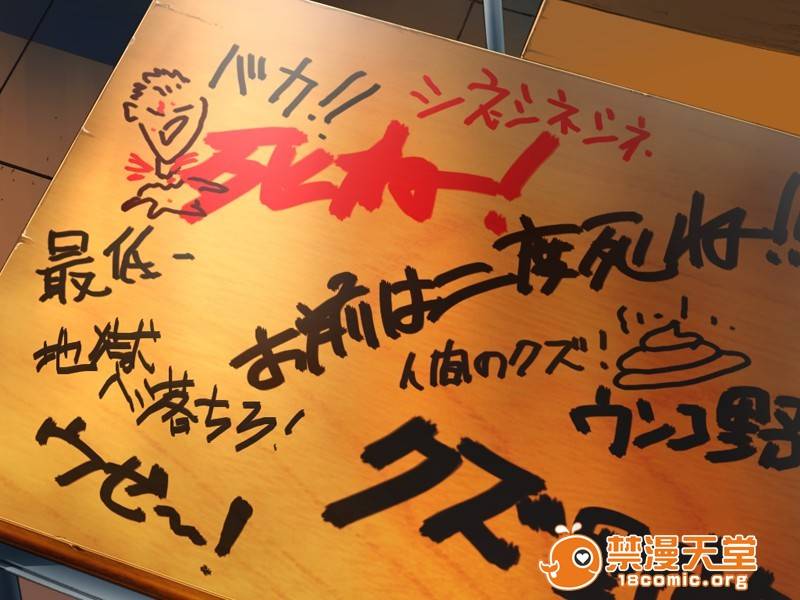 バカ!!
シズシネシネ
死ねー!
お前は二度死ね!!
最低ー
地獄へ落ちろ!
人間のクズ!
ウンコ野
うぜ〜!
クズ
禁漫天堂
18comic.org